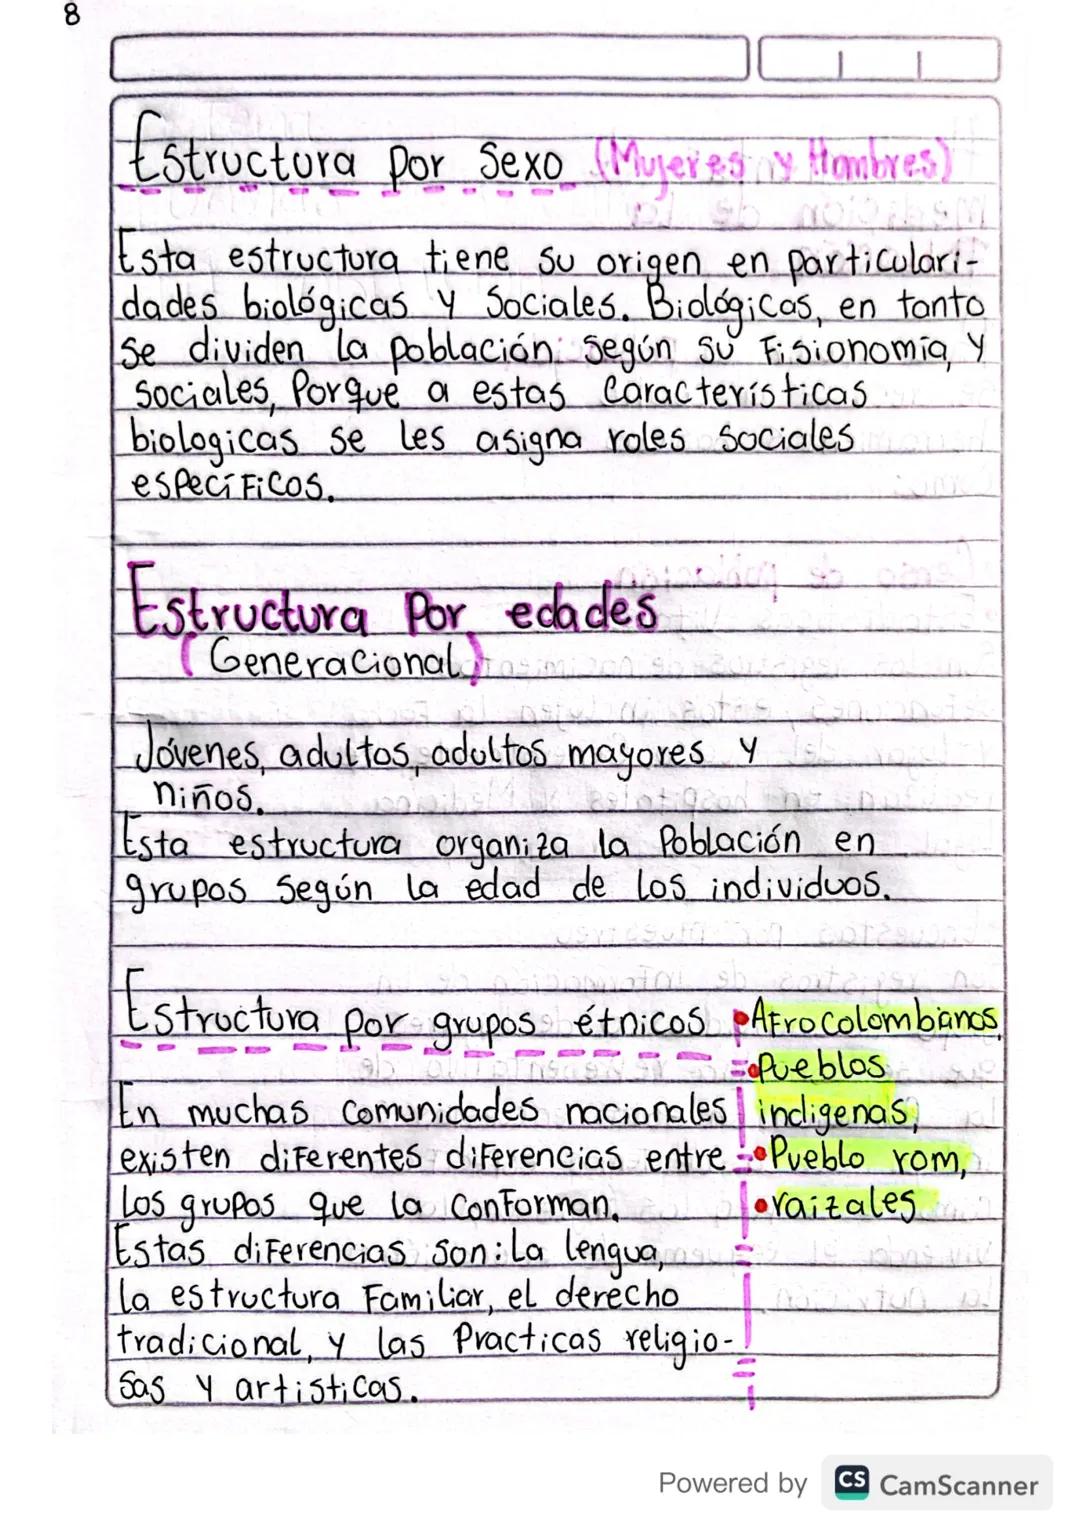 8
Estructura por Sexo (Mujeres y Hombres)
Esta estructura tiene su origen en particulari-
dades biológicas y Sociales. Biológicas, en tanto
se dividen la población según su Fisionomía, y
sociales, Porque a estas Características
biologicas se les asigna roles sociales
específicos.
Estructura Por edades
(Generacional)
Jóvenes, adultos, adultos mayores y
niños.
Esta estructura organiza la Población en
grupos según la edad de los individuos.
Estructura por grupos étnicos
En muchas Comunidades nacionales
existen diferentes diferencias entre
los grupos que la Conforman.
Estas diferencias son: La lengua,
la estructura Familiar, el derecho
tradicional, y las Practicas religio-
sas y artisticas.
• Afrocolombianos,
• Pueblos
indigenas,
• Pueblo rom,
• raizales
Powered by CS CamScanner